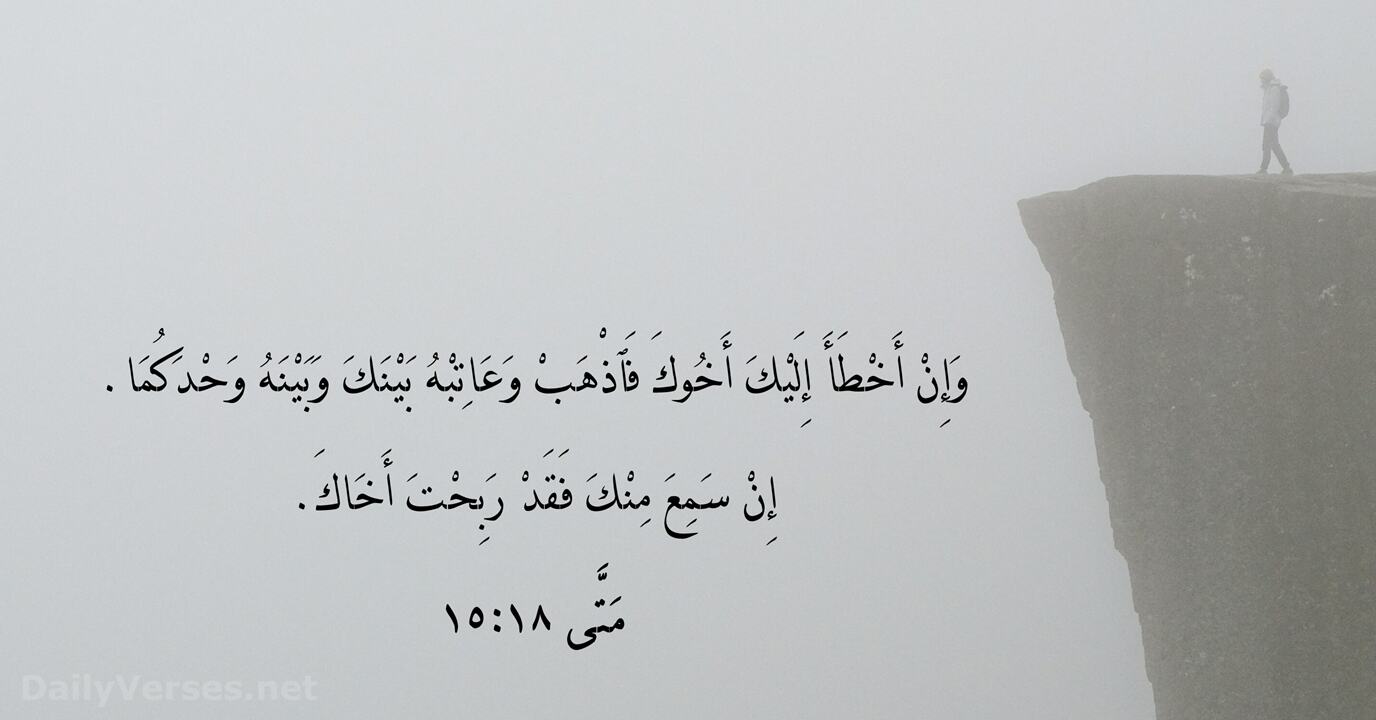 وَإِنْ أَخْطَأَ إِلَيْكَ أَخُوكَ فَٱذْهَبْ وَعَاتِبْهُ بَيْنَكَ وَبَيْنَهُ وَحْدَكُمَا .
إِنْ سَمِعَ مِنْكَ فَقَدْ رَبِحْتَ أَخَاكَ .
مَتَّى ١٥:١٨
DailyVerses.net